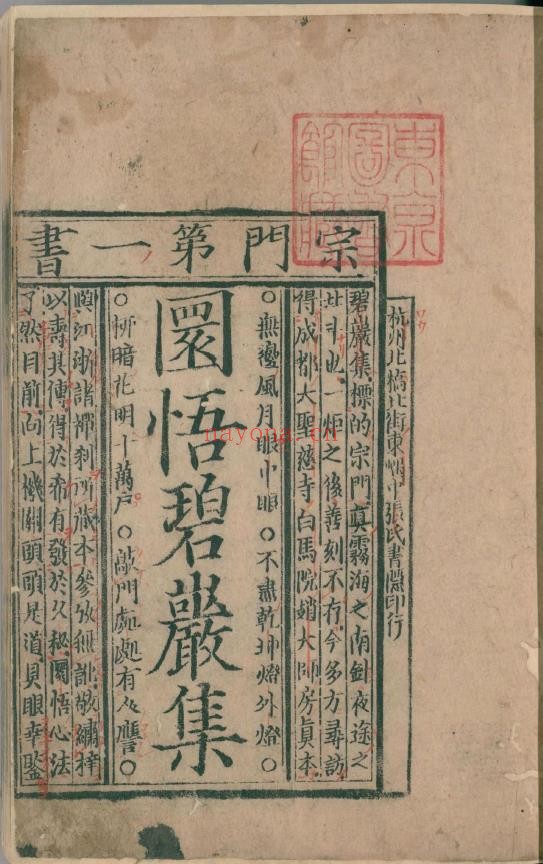 東京
圖書
館藏
宗門第一書
杭州北橋北街東嶼中張氏書隱印行
碧巖集標的宗門真霧海之南針夜途之
北斗也一炬之後善刻不存今多方尋訪
得成都大聖慈寺白馬院趙大師房真本
○無邊風月眼中眼○不盡乾坤燈外燈○
圜悟碧巖集
○栁暗花明十萬戶○敲門處處有人譍○
慎江浙諸禪刹所藏本參攷無訛敬繡梓
以壽其傳得於希有發於久秘圜悟心法
了然目前向上機關頭頭是道具眼幸鑒
nayona.cn